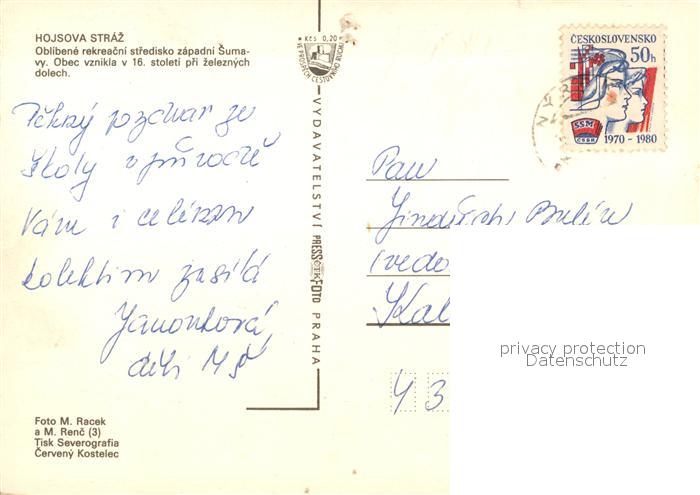 HOJSOVA STRÁŽ
Oblíbené rekreační středisko západní Šuma-
vy. Obec vznikla v 16. století při železných
dolech.
Pěkný pozdrav ze
školy v přírodě
Vám i celému
kolektivu zasílá
děti MŠ
Foto M. Racek
a M. Renč (3)
Tisk Severografia
Červený Kostelec
Kčs 0,20
VE PROSPĚCH CESTOVNÍHO RUCHU
VYDAVATELSTVÍ PRESSFOTO PRAHA
ČTK
ČESKOSLOVENSKO
50h
SSM
ČSSR
1970 - 1980
Pan
Jindřich
Kal
43
privacy protection
Datenschutz